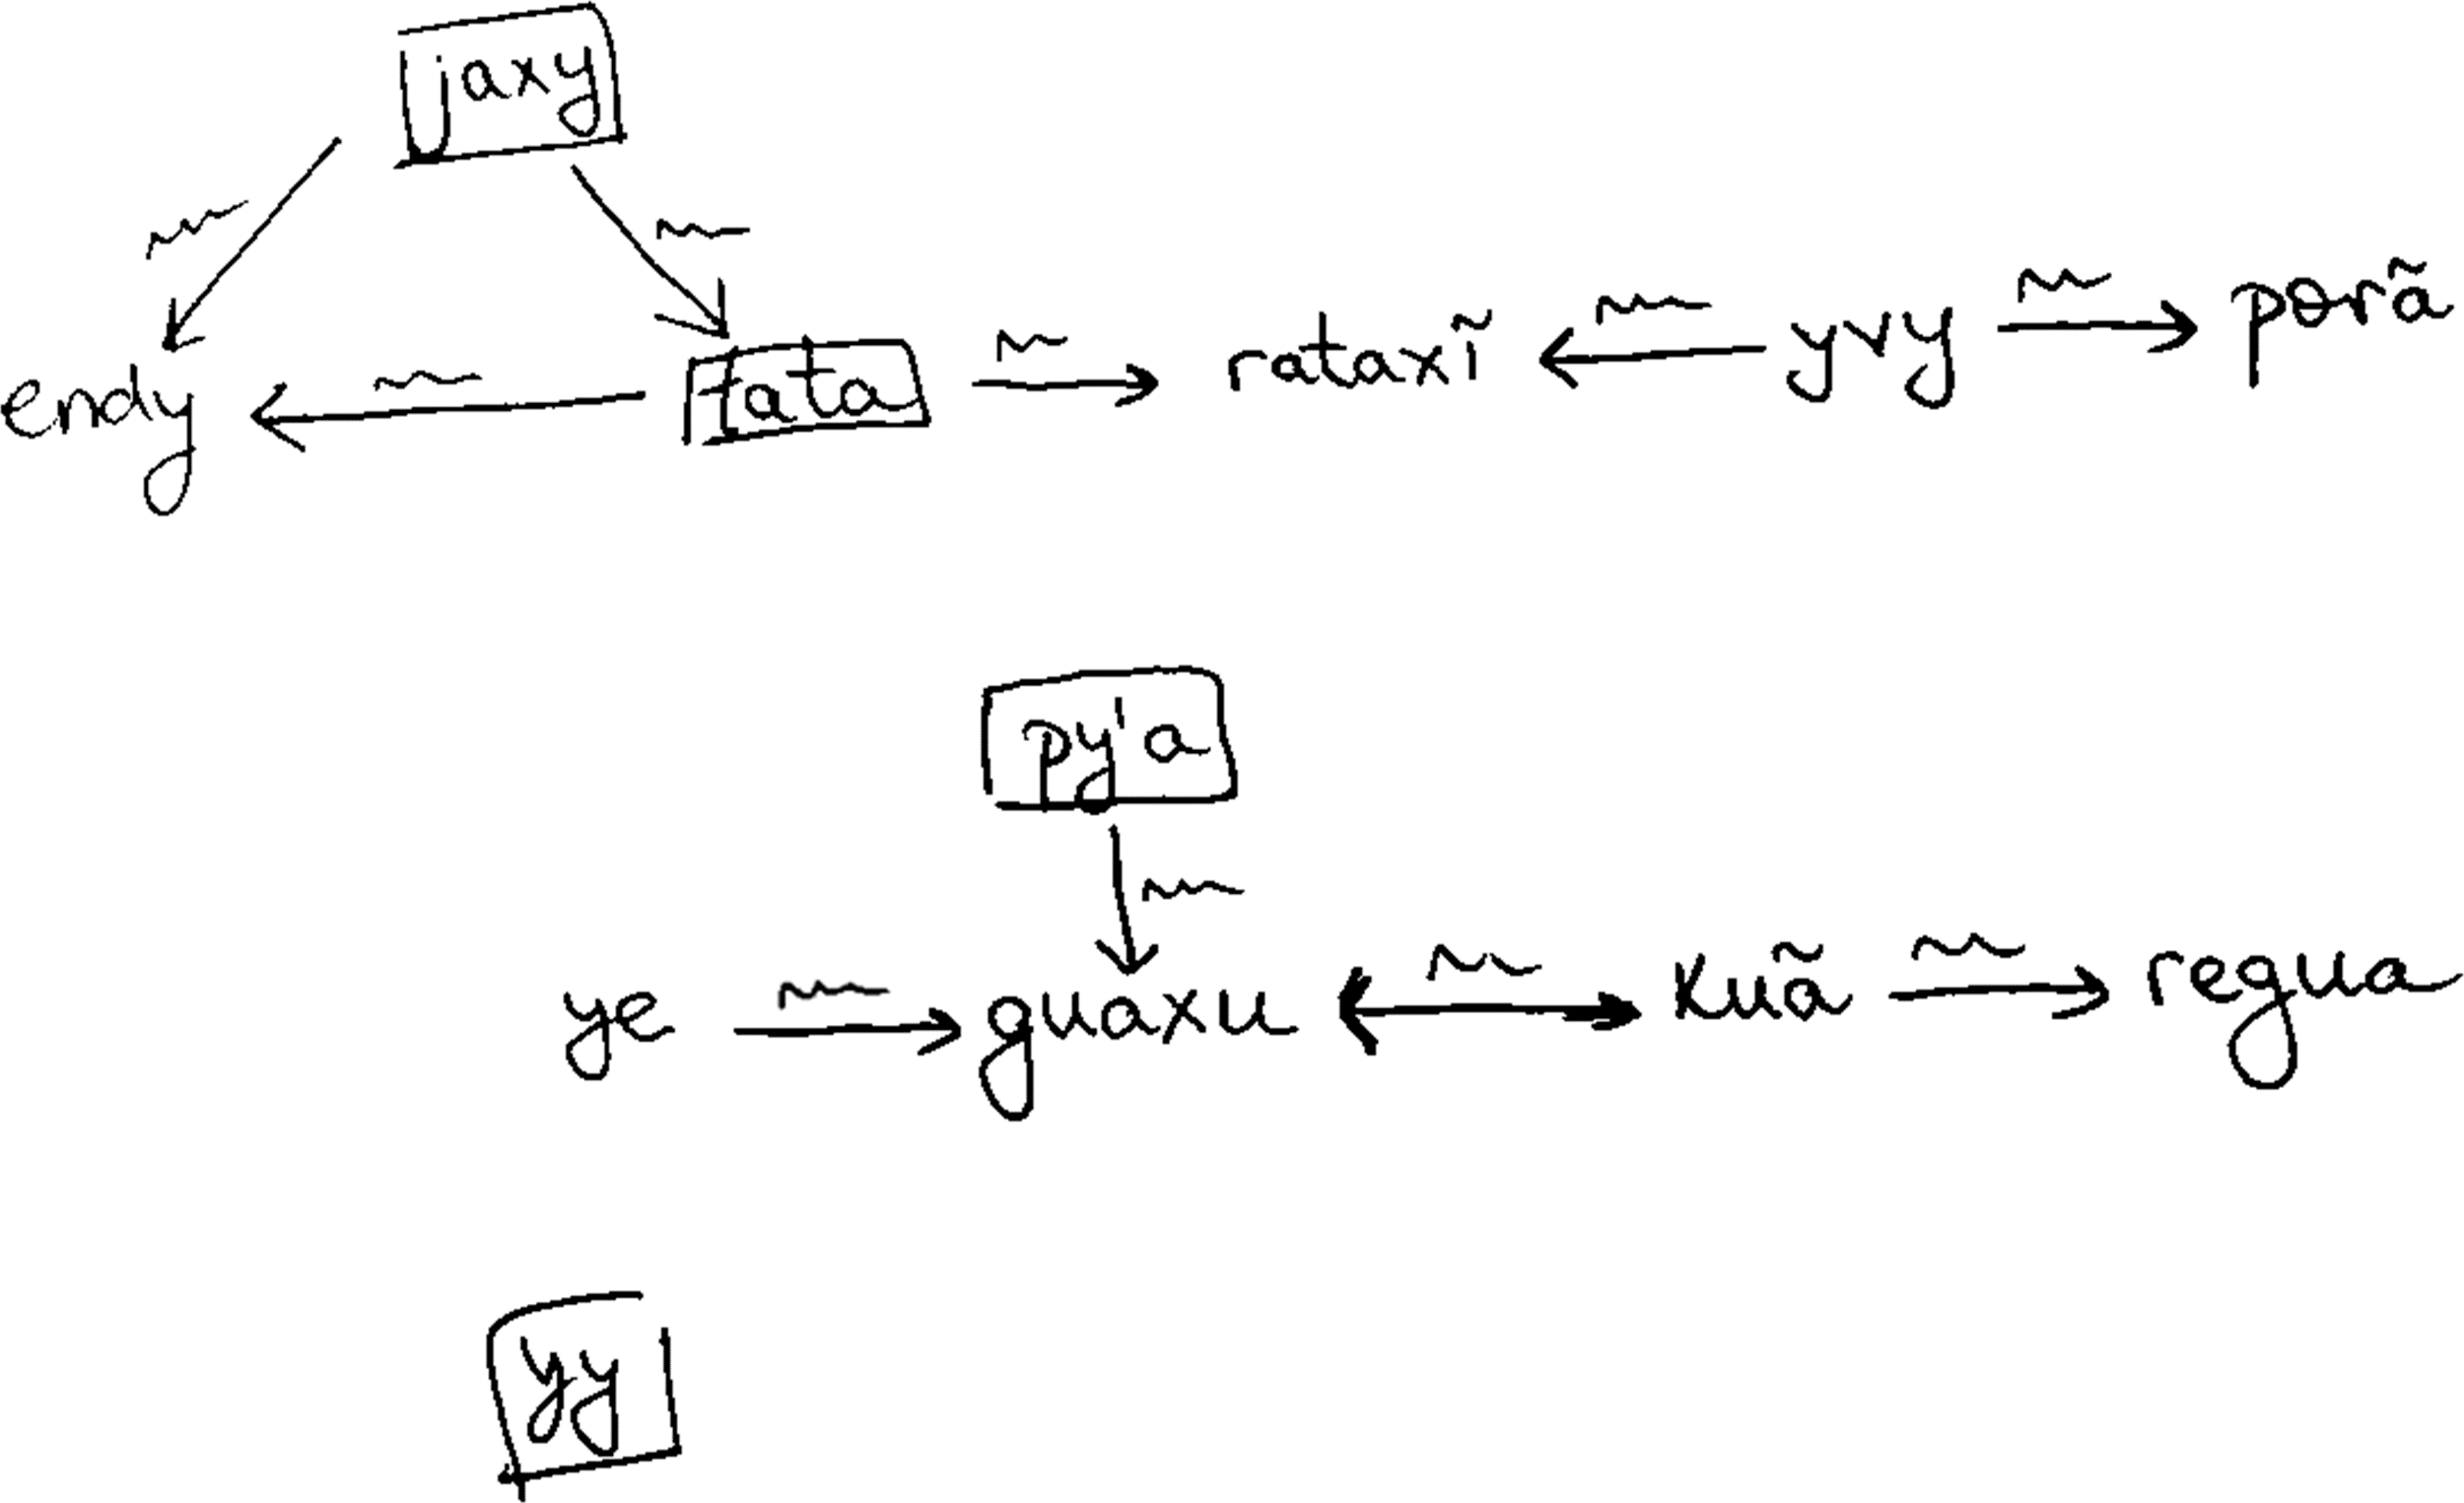 jaxy
endy tata rataxĩ yvy porã
py'a
ye guaxu kuã regua
yy